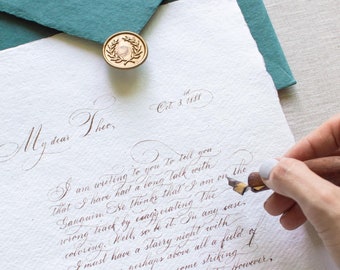 Oct. 3. 1888
My dear Theo,
I am writing to you to tell you
that I have had a long talk with
Gauguin. He thinks that I am on the
wrong track by exaggerating the
coloring. Well, so be it. In any case,
I must have a starry night with
perhaps above all a field of
some striking
However,